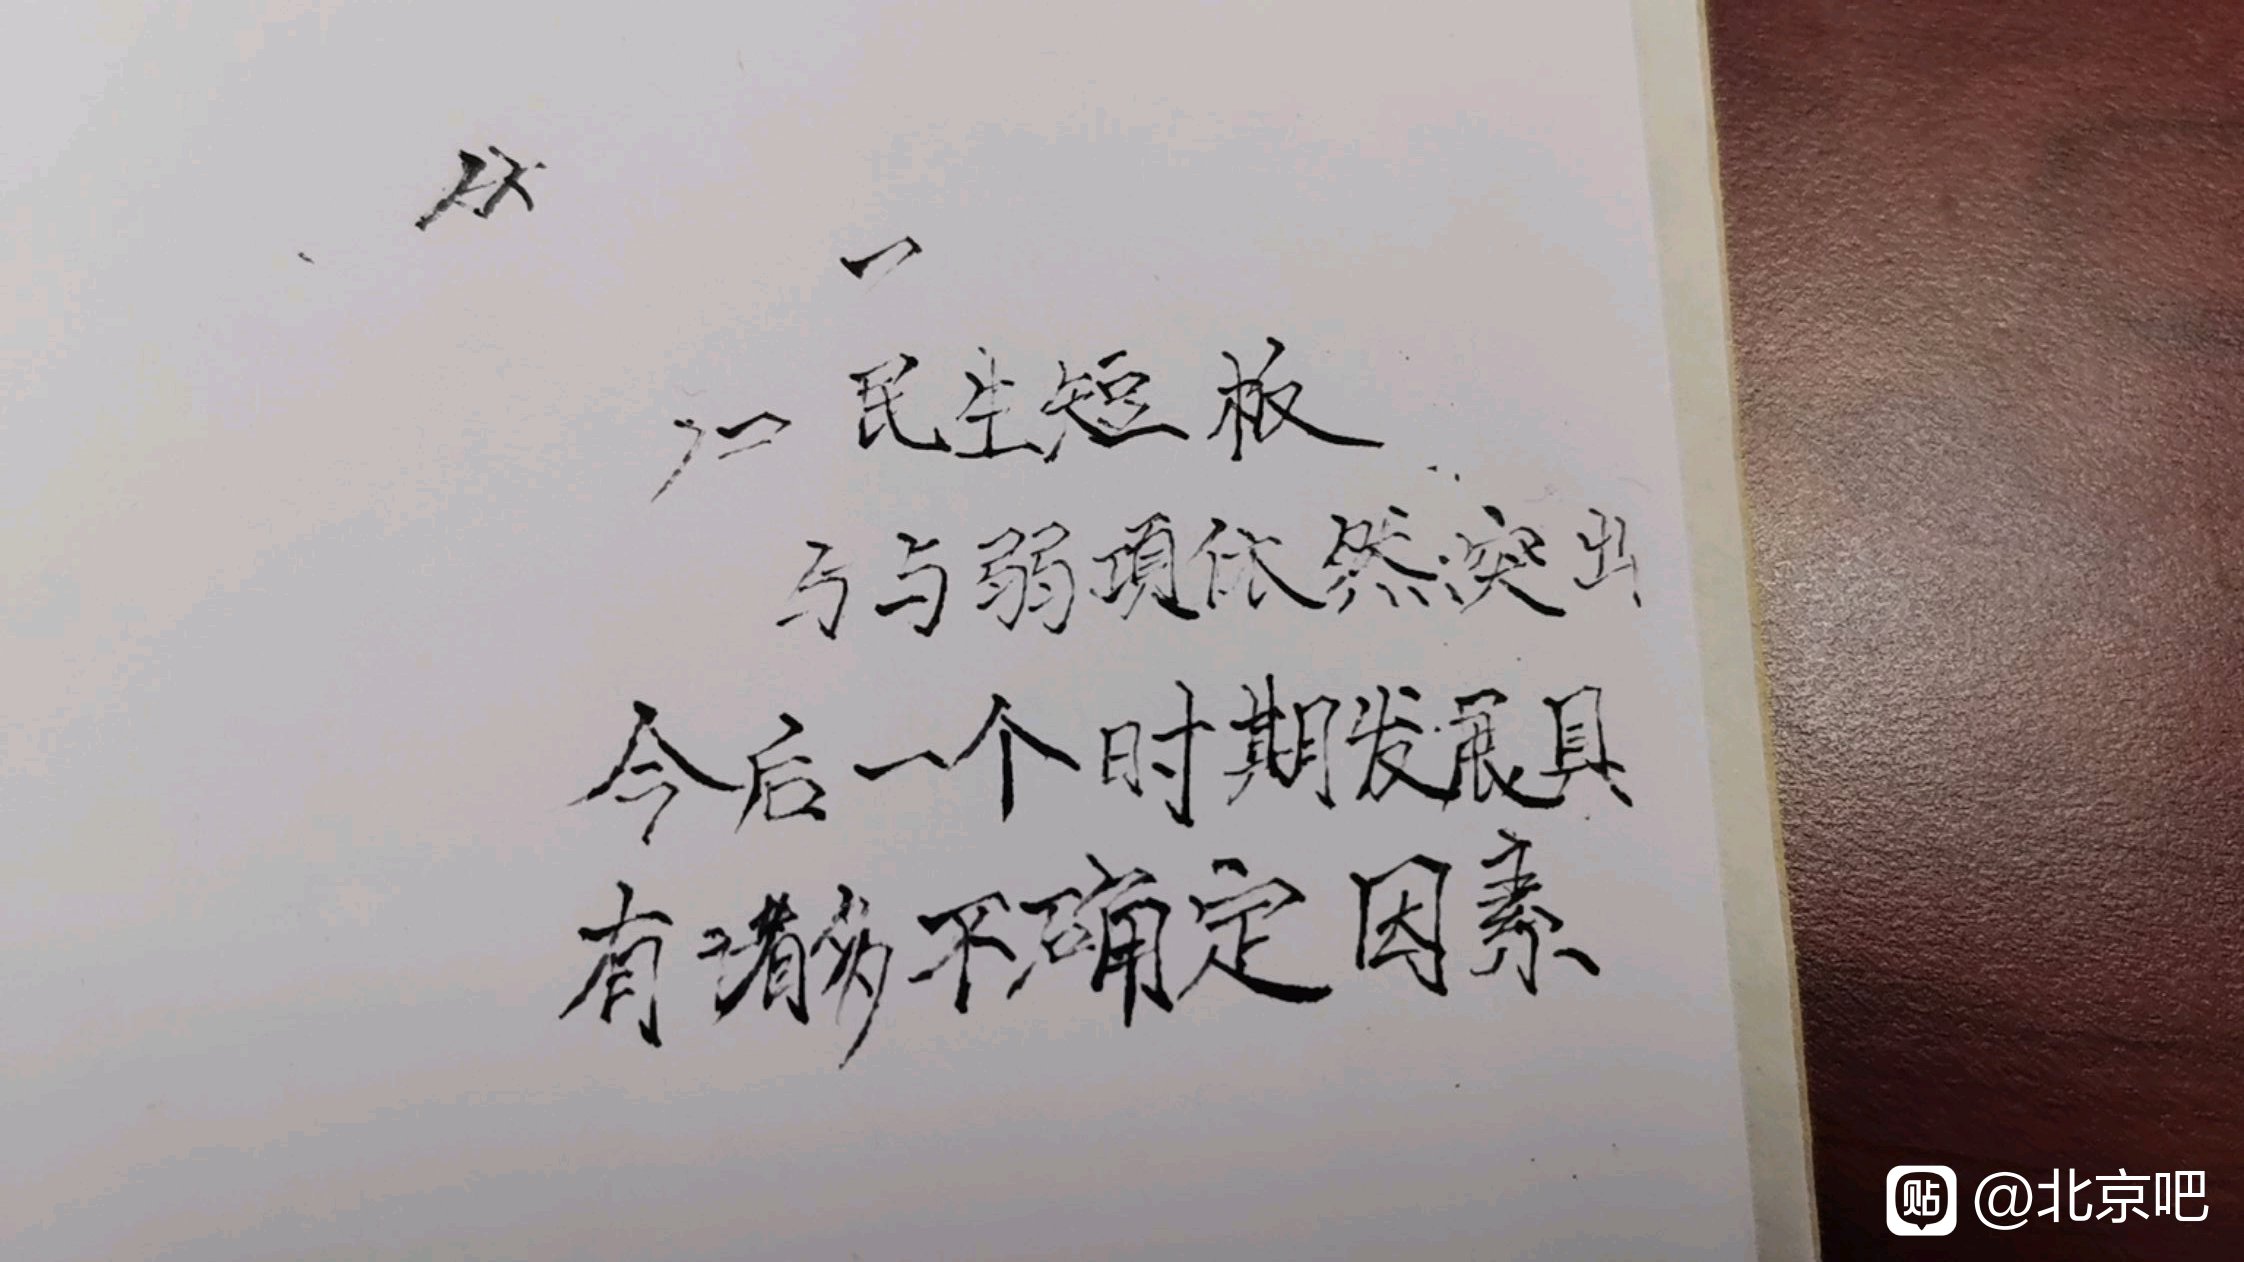 一
民生短板
与与弱项依然突出
今后一个时期发展具
有诸多不确定因素
贴 @北京吧